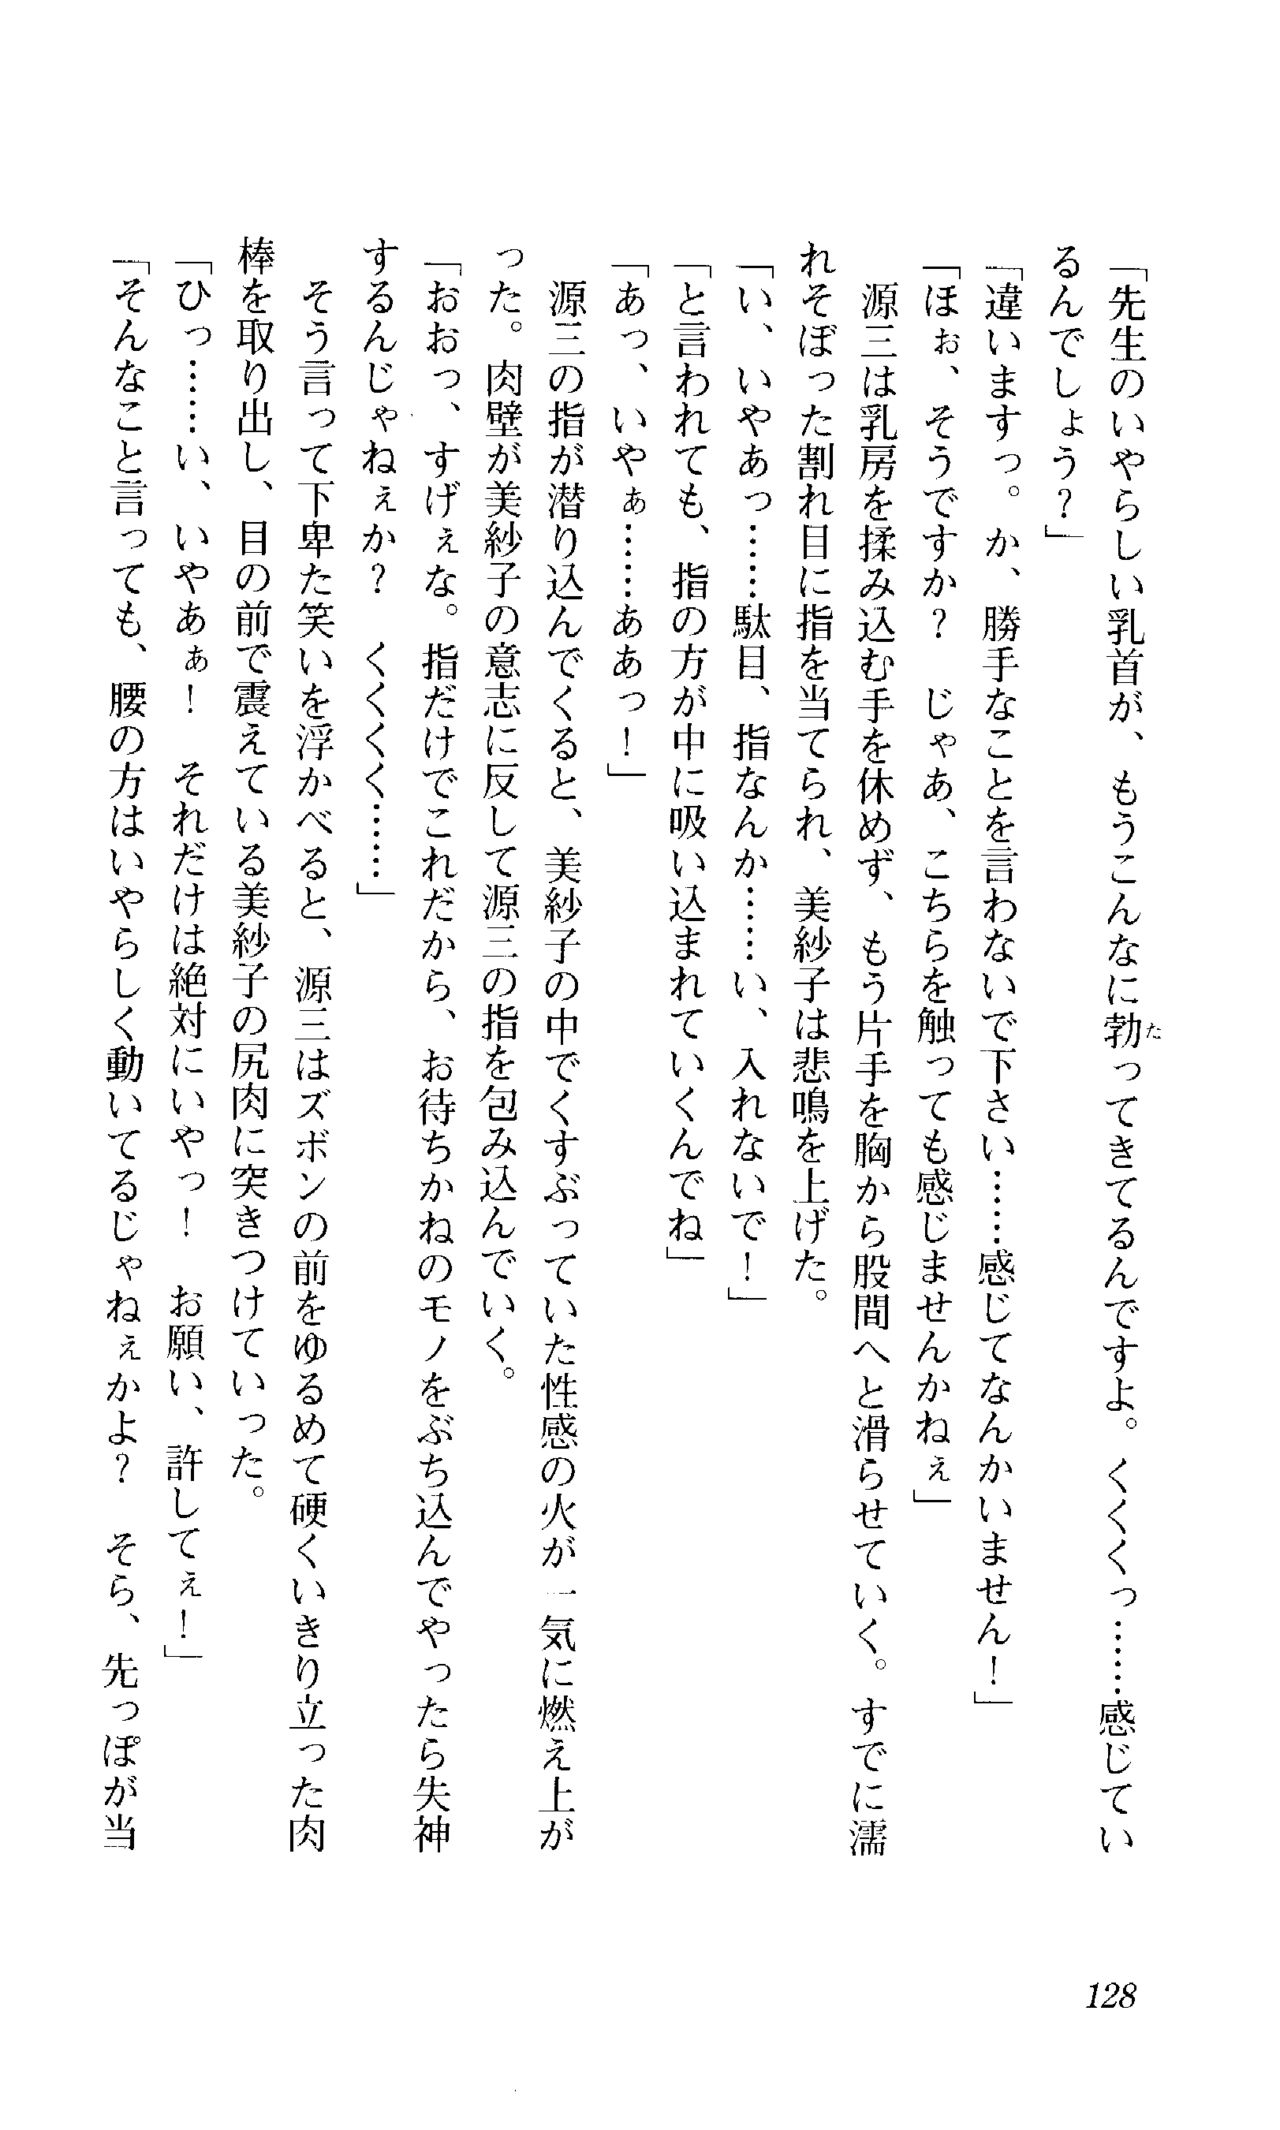 「先生のいやらしい乳首が、もうこんなに勃ってきてるんですよ。くくくっ……感じてい
た
るんでしょう？」
「違いますっ。か、勝手なことを言わないで下さい……感じてなんかいません！」
「ほぉ、そうですか？　じゃあ、こちらを触っても感じませんかねぇ」
　源三は乳房を揉み込む手を休めず、もう片手を胸から股間へと滑らせていく。すでに濡
れそぼった割れ目に指を当てられ、美紗子は悲鳴を上げた。
「い、いやあっ……駄目、指なんか……い、入れないで！」
「と言われても、指の方が中に吸い込まれていくんでね」
「あっ、いやぁ……ああっ！」
　源三の指が潜り込んでくると、美紗子の中でくすぶっていた性感の火が一気に燃え上が
った。肉壁が美紗子の意志に反して源三の指を包み込んでいく。
「おおっ、すげぇな。指だけでこれだから、お待ちかねのモノをぶち込んでやったら失神
するんじゃねぇか？　くくくく……」
　そう言って下卑た笑いを浮かべると、源三はズボンの前をゆるめて硬くいきり立った肉
棒を取り出し、目の前で震えている美紗子の尻肉に突きつけていった。
「ひっ……い、いやあぁ！　それだけは絶対にいやっ！　お願い、許してぇ！」
「そんなこと言っても、腰の方はいやらしく動いてるじゃねぇかよ？　そら、先っぽが当
128